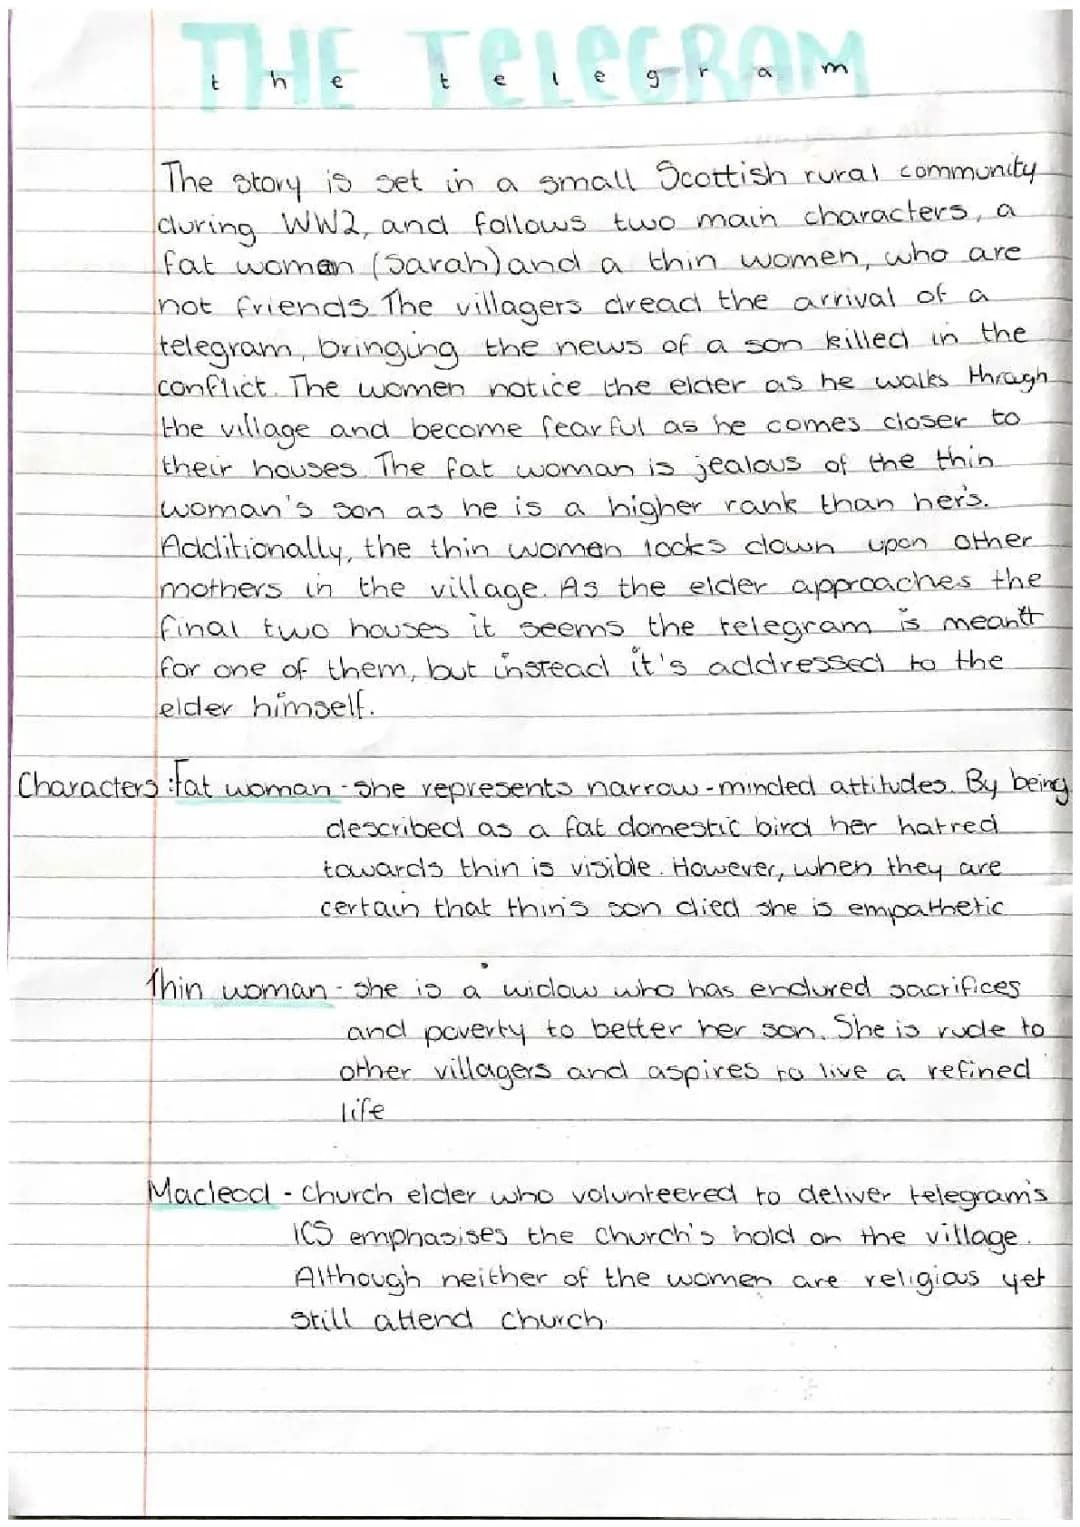 THE TELEGRAM
the telegram
The story is set in a small Scottish rural community
during WW2, and follows two main characters, a
fat woman (Sarah) and a thin women, who are
not friends. The villagers dread the arrival of a
telegram, bringing the news of a son killed in the
conflict. The women notice the elder as he walks through
the village and become fearful as he comes closer to
their houses. The fat woman is jealous of the thin
woman's son as he is a higher rank than her's.
Additionally, the thin women looks down upon other
mothers in the village. As the elder approaches the
final two houses it seems the telegram is meant
for one of them, but instead it's addressed to the
elder himself.
Characters: Fat woman - she represents narrow-minded attitudes. By being
described as a fat domestic bird her hatred
towards thin is visible. However, when they are
certain that thin's son died she is empathetic
Thin woman - she is a widow who has endured sacrifices
and poverty to better her son. She is rude to
other villagers and aspires to live a refined
life
Macleod - Church elder who volunteered to deliver telegram's
ICS emphasises the church's hold on the village.
Although neither of the women are religious yet
still attend church.